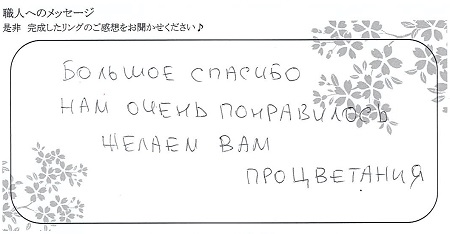 職人へのメッセージ
是非 完成したリングのご感想をお聞かせください♪
БОЛЬШОЕ СПАСИБО
НАМ ОЧЕНЬ ПОНРАВИЛОСЬ
ЖЕЛАЕМ ВАМ
ПРОЦВЕТАНИЯ